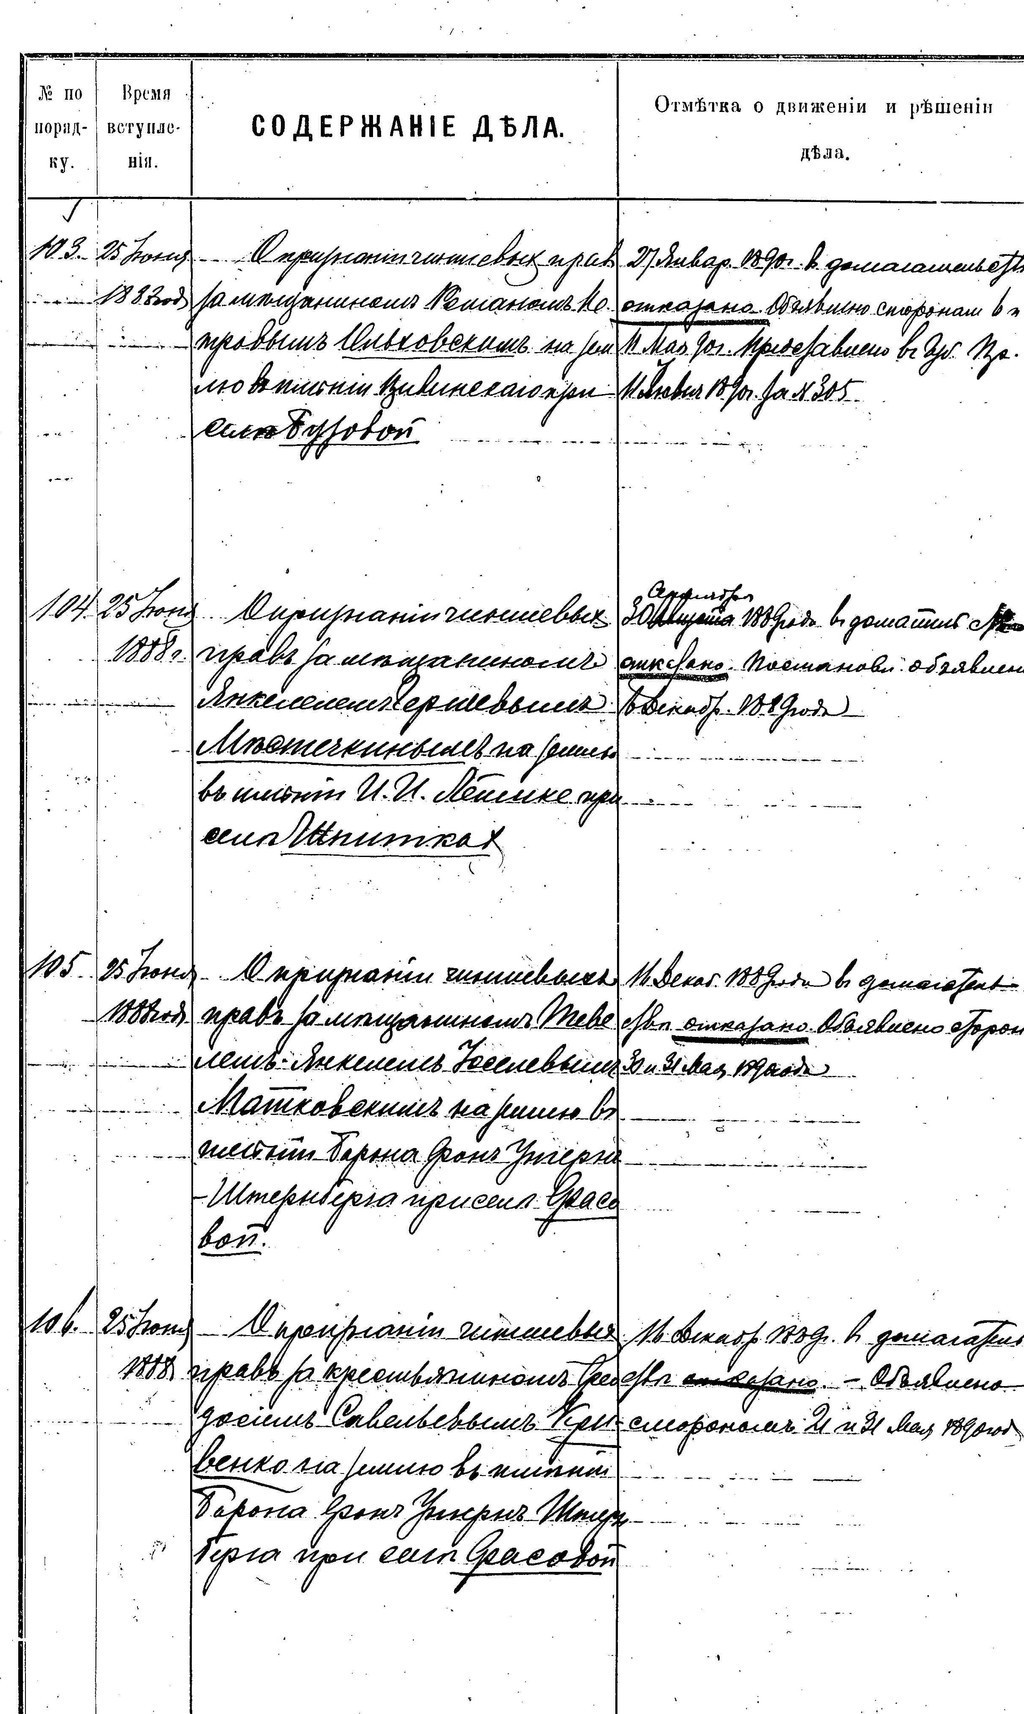 № по поряд- ку.
Время вступле- нія.
СОДЕРЖАНІЕ ДѢЛА.
Отмѣтка о движеніи и рѣшеніи
дѣла.
103. 25 Іюня О признаніи чиншевыхъ правъ
188 года за мѣщаниномъ
Ольховскимъ на зем
лю въ имѣніи при
селѣ Бузовой
27 Январ. 1890г. въ домагательствѣ
отказано. Объявлено сторонам
11 Мая 90г. Представлено въ Губ. Пр.
11 1890г. за № 305
104 25 Іюня О признаніи чиншевыхъ
1888г. правъ за мѣщаниномъ
Янкелемъ Гершевымъ
Мѣстечкинымъ на землю
въ имѣніи И. И. при
селѣ Шпиткахъ
Сентября
30 Августа 1889 года въ
отказано. Постановл. объявлено
16 Декабр. 1889 года
105 25 Іюня О признаніи чиншевыхъ
1888 года правъ за мѣщаниномъ Теве
лемъ-Янкелемъ Іоселевымъ
Матковскимъ на землю въ
имѣніи Барона Фонъ Унгернъ
-Штернберга при селѣ Фасо
вой.
16 Декаб. 1889 года въ домагатель-
ствѣ отказано. Объявлено сторон
и 31 Мая 1890 года
106. 25 Іюня О признаніи чиншевыхъ
1888 правъ за крестьяниномъ Фео
досіемъ Савельевымъ Кри-
венко на землю въ имѣніи
Барона Фонъ Унгернъ Штерн
берга при селѣ Фасовой
16 Декабр 1889г. въ домагатель
ствѣ отказано. — Объявлено
сторонамъ 21 и 31 Мая 1890 год